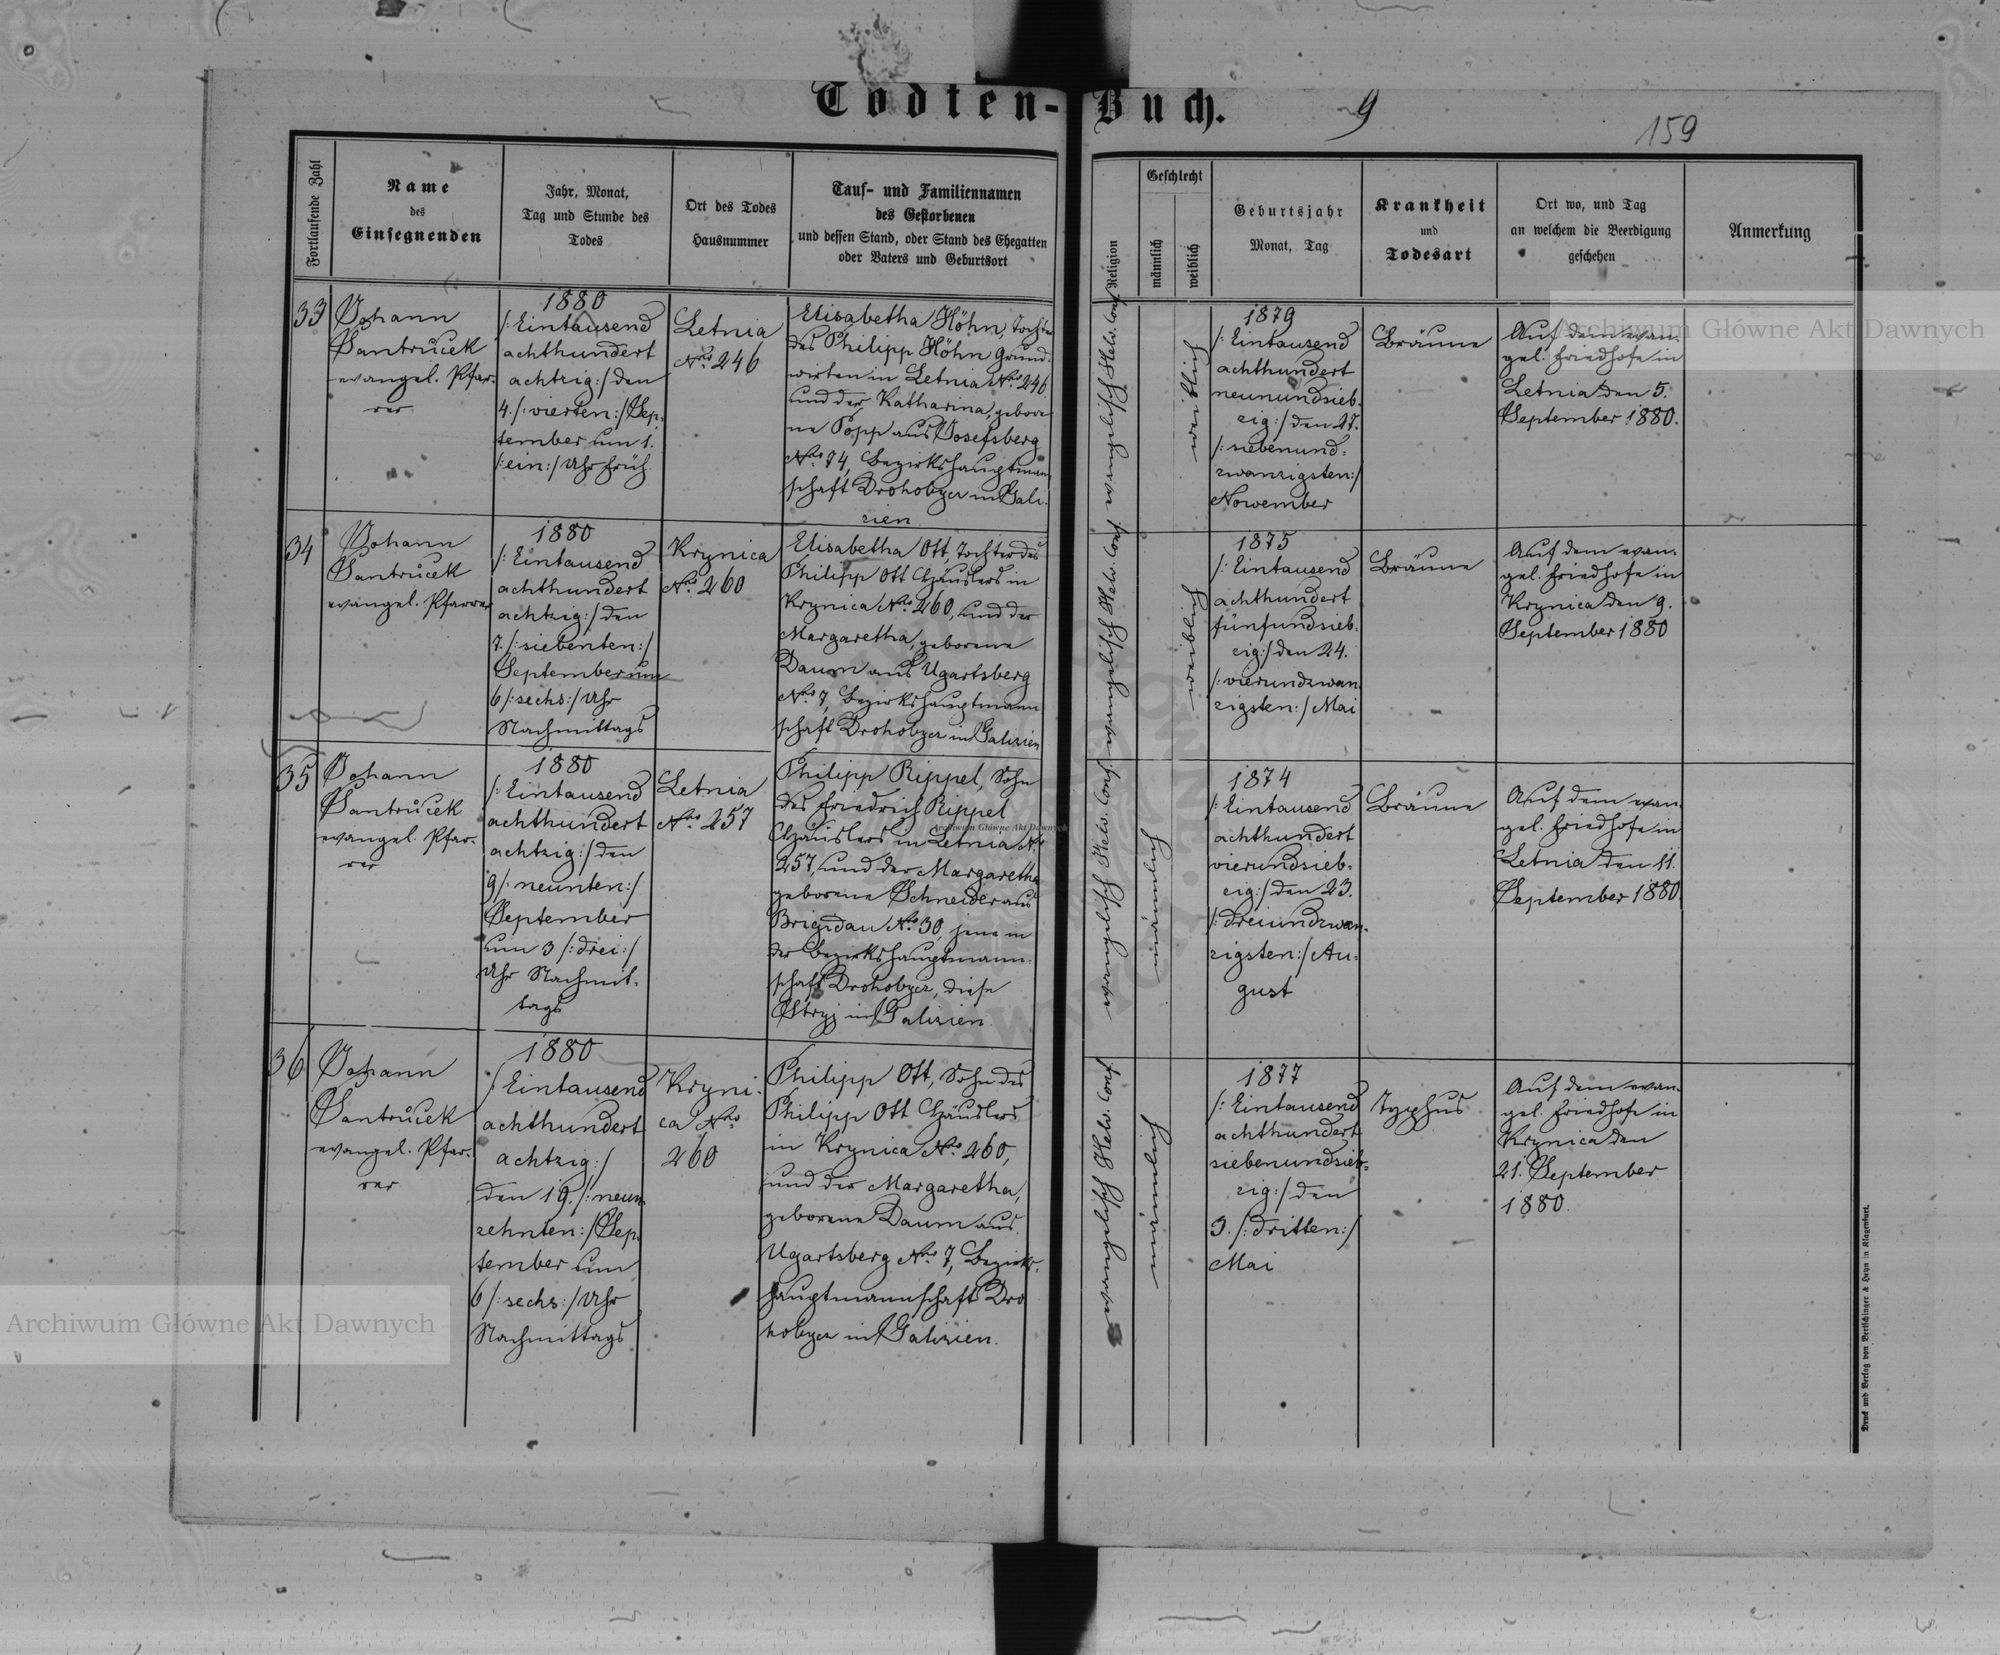 Todten-Buch.
9
159
Fortlaufende Zahl
Name
des
Einsegnenden
Jahr, Monat,
Tag und Stunde des
Todes
Ort des Todes
Hausnummer
Tauf- und Familiennamen
des Gestorbenen
und dessen Stand, oder Stand des Ehegatten
oder Vaters und Geburtsort
Religion
Geschlecht
männlich
weiblich
Geburtsjahr
Monat, Tag
Krankheit
und
Todesart
Ort wo, und Tag
an welchem die Beerdigung
geschehen
Anmerkung
33
Johann
Jantrůček
evangel. Pfar-
rer
1880
/: Eintausend
achthundert
achtzig :/ den
4. /: vierten :/ Sep-
tember um 1.
/: ein :/ Uhr früh
Letnia
Nro. 246
Elisabetha Höhn, Tochter
des Philipp Höhn Grund-
wirten in Letnia Nro. 246
und der Katharina, gebore
ne Popp aus Josefsberg
Nro. 74, Bezirkshauptman
schaft Drohobycz in Gali-
zien
evangelisch Helv. Conf.
weiblich
1879
/: Eintausend
achthundert
neunundsieb-
zig :/ den 27.
/: siebenund-
zwanzigsten :/
November
Bräune
Auf dem evan-
gel. Friedhofe in
Letnia den 5.
September 1880.
34
Johann
Jantrůček
evangel. Pfarrer
1880
/: Eintausend
achthundert
achtzig :/ den
7. /: siebenten :/
September um
6 /: sechs :/ Uhr
Nachmittags
Krynica
Nro. 260
Elisabetha Ott, Tochter des
Philipp Ott Häuslers in
Krynica Nro. 260, und der
Margaretha, geborene
Daum aus Ugartsberg
Nro. 7, Bezirkshauptmann
schaft Drohobycz in Galizien
evangelisch Helv. Conf.
weiblich
1875
/: Eintausend
achthundert
fünfundsieb-
zig :/ den 24.
/: vierundzwan
zigsten :/ Mai
Bräune
Auf dem evan-
gel. Friedhofe in
Krynica den 9.
September 1880
35
Johann
Jantrůček
evangel. Pfar-
rer
1880
/: Eintausend
achthundert
achtzig :/ den
9 /: neunten :/
September
um 3 /: drei :/
Uhr Nachmit-
tags
Letnia
Nro. 257
Philipp Rippel, Sohn
des Friedrich Rippel
Häuslers in Letnia Nro.
257, und der Margaretha
geborene Schneider aus
Brigidau Nro. 30, jene in
der Bezirkshauptmann-
schaft Drohobycz, diese
Stryj in Galizien.
evangelisch Helv. Conf.
männlich
1874
/: Eintausend
achthundert
vierundsieb-
zig :/ den 23.
/: dreiundzwan-
zigsten :/ Au-
gust
Bräune
Auf dem evan-
gel. Friedhofe in
Letnia den 11.
September 1880.
36
Johann
Jantrůček
evangel. Pfar-
rer
1880
/: Eintausend
achthundert
achtzig :/
den 19. /: neun
zehnten :/ Sep-
tember um
6 /: sechs :/ Uhr
Nachmittags
Kryni-
ca Nro.
260
Philipp Ott, Sohn des
Philipp Ott Häuslers
in Krynica Nro. 260,
und der Margaretha,
geborene Daum aus
Ugartsberg Nro. 7, Bezirks-
hauptmannschaft Dro
hobycz in Galizien.
evangelisch Helv. Conf.
männlich
1877
/: Eintausend
achthundert
siebenundsieb-
zig :/ den
3. /: dritten :/
Mai
Typhus
Auf dem evan-
gel. Friedhofe in
Krynica den
21. September
1880.
Druck und Verlag von Bertschinger & Heyn in Klagenfurt.
Archiwum Główne Akt Dawnych
Archiwum Główne Akt Dawnych
Archiwum Główne Akt Dawnych